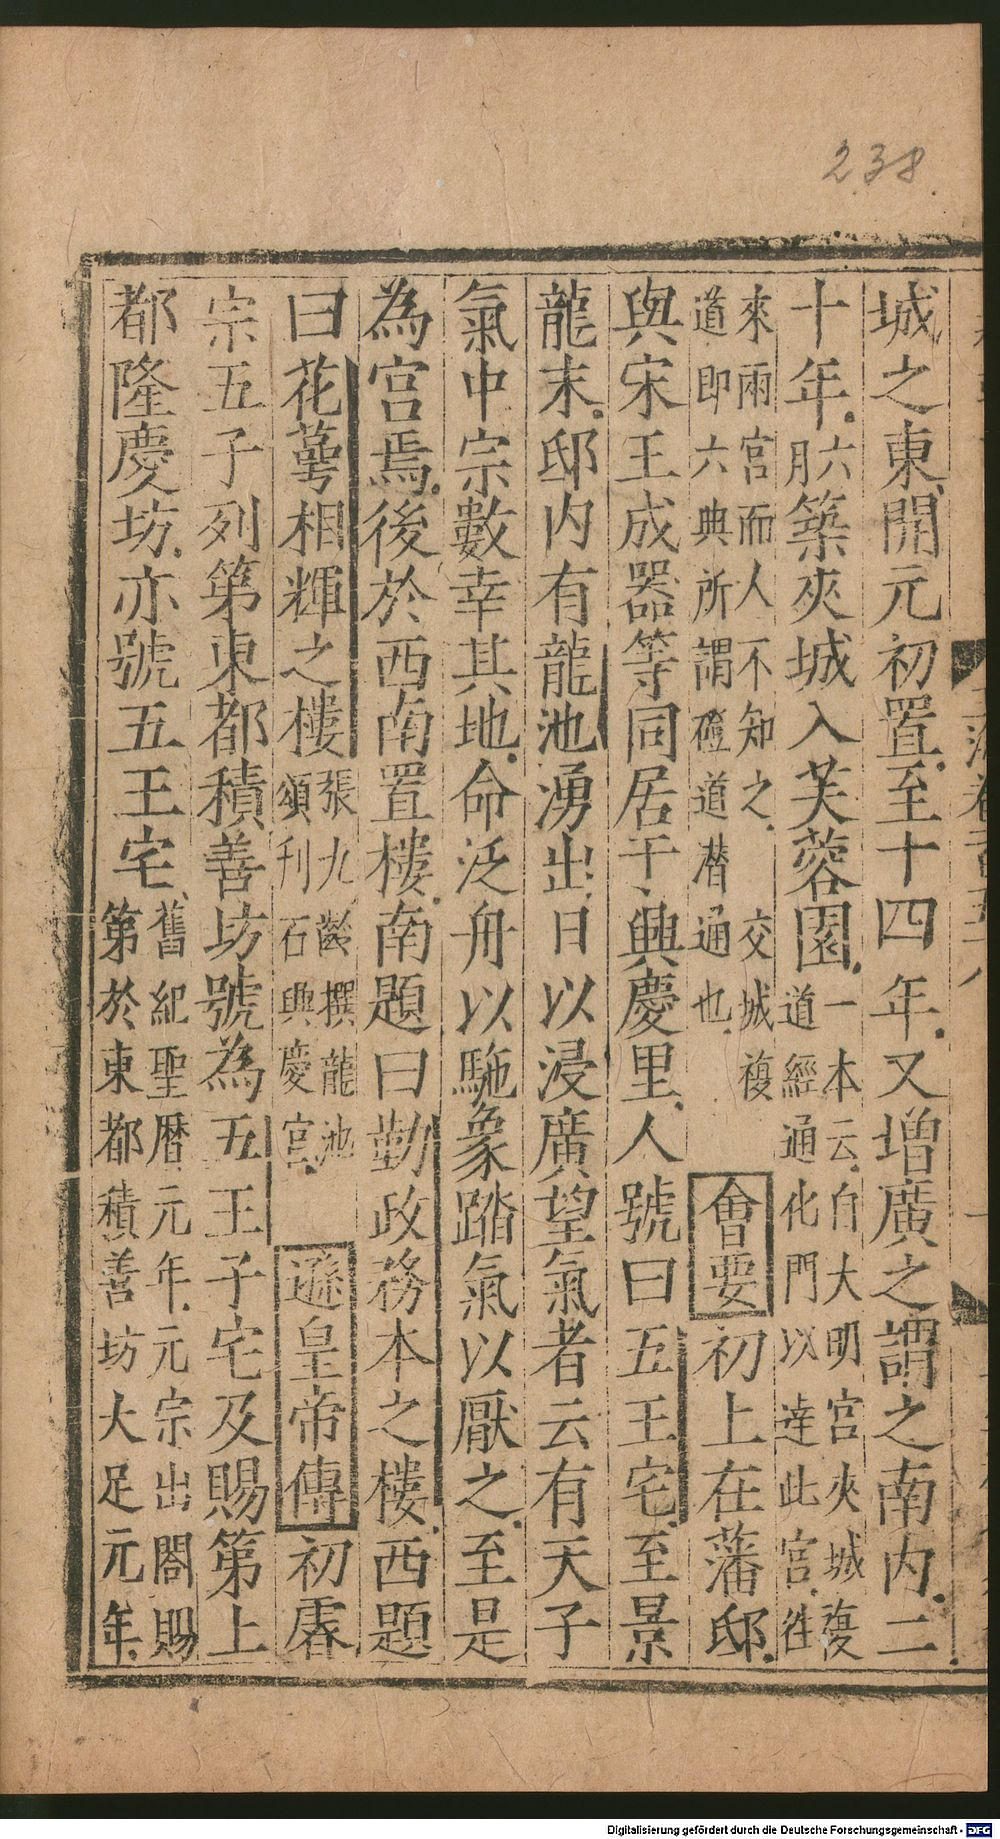 238.
城之東開元初置至十四年又增廣之謂之南内二
十年六月築夾城入芙蓉園一本云自大明宫夾城複道經通化門以達此宫往
來兩宫而人不知之 交城複道即六典所謂磴道潜通也 會要初上在藩邸
與宋王成器等同居于興慶里人號曰五王宅至景
龍末邸内有龍池湧出日以浸廣望氣者云有天子
氣中宗數幸其地命泛舟以駞象踏氣以厭之至是
為宫焉後於西南置樓南題曰勤政務本之樓西題
曰花萼相輝之樓張九齡撰龍池頌刊石興慶宫 遜皇帝傳初睿
宗五子列第東都積善坊號為五王子宅及賜第上
都隆慶坊亦號五王宅舊紀聖曆元年元宗出閤賜第於東都積善坊大足元年
Digitalisierung gefördert durch die Deutsche Forschungsgemeinschaft - DFG